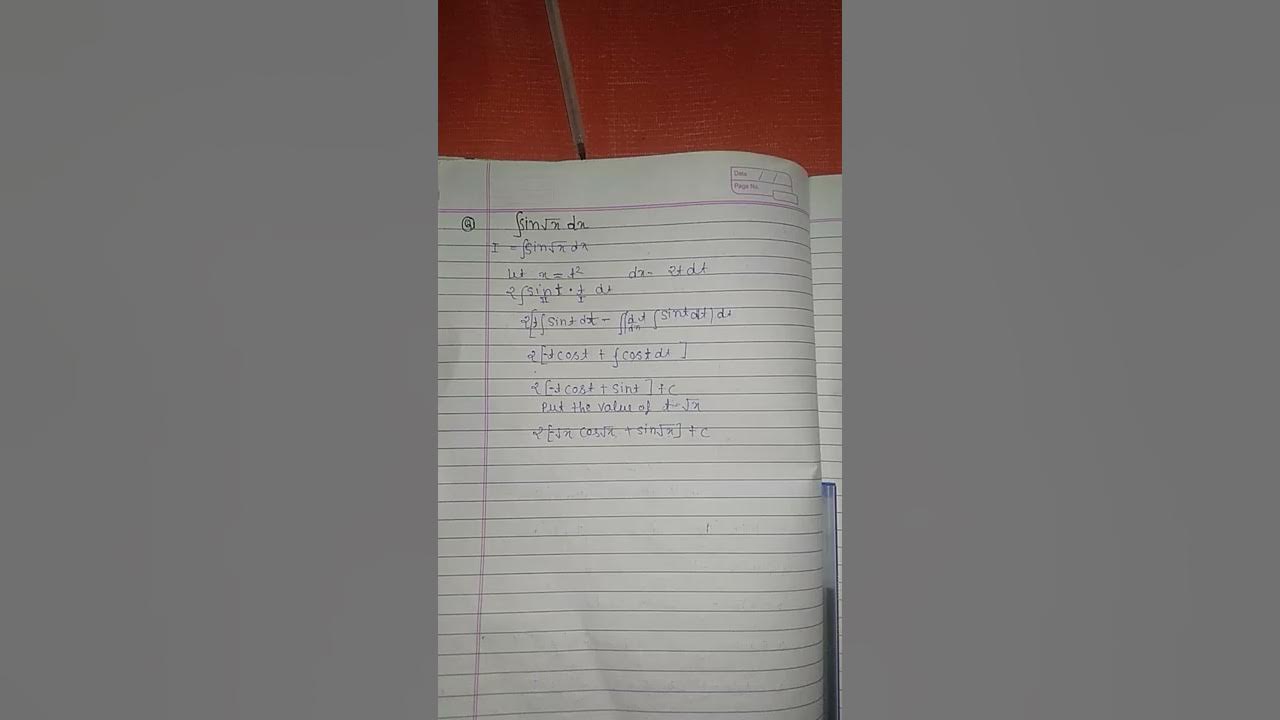 Date / /
Page No.
Q ∫sin√x dx
I = ∫sin√x dx
Let x = t² dx = 2t dt
2∫sin t · t dt
II I
2[t∫sin t dt - ∫(dt/dx ∫sin t dt) dt
2[-t cos t + ∫cos t dt]
2[-t cos t + sin t] + C
Put the value of t = √x
2[-√x cos√x + sin√x] + C